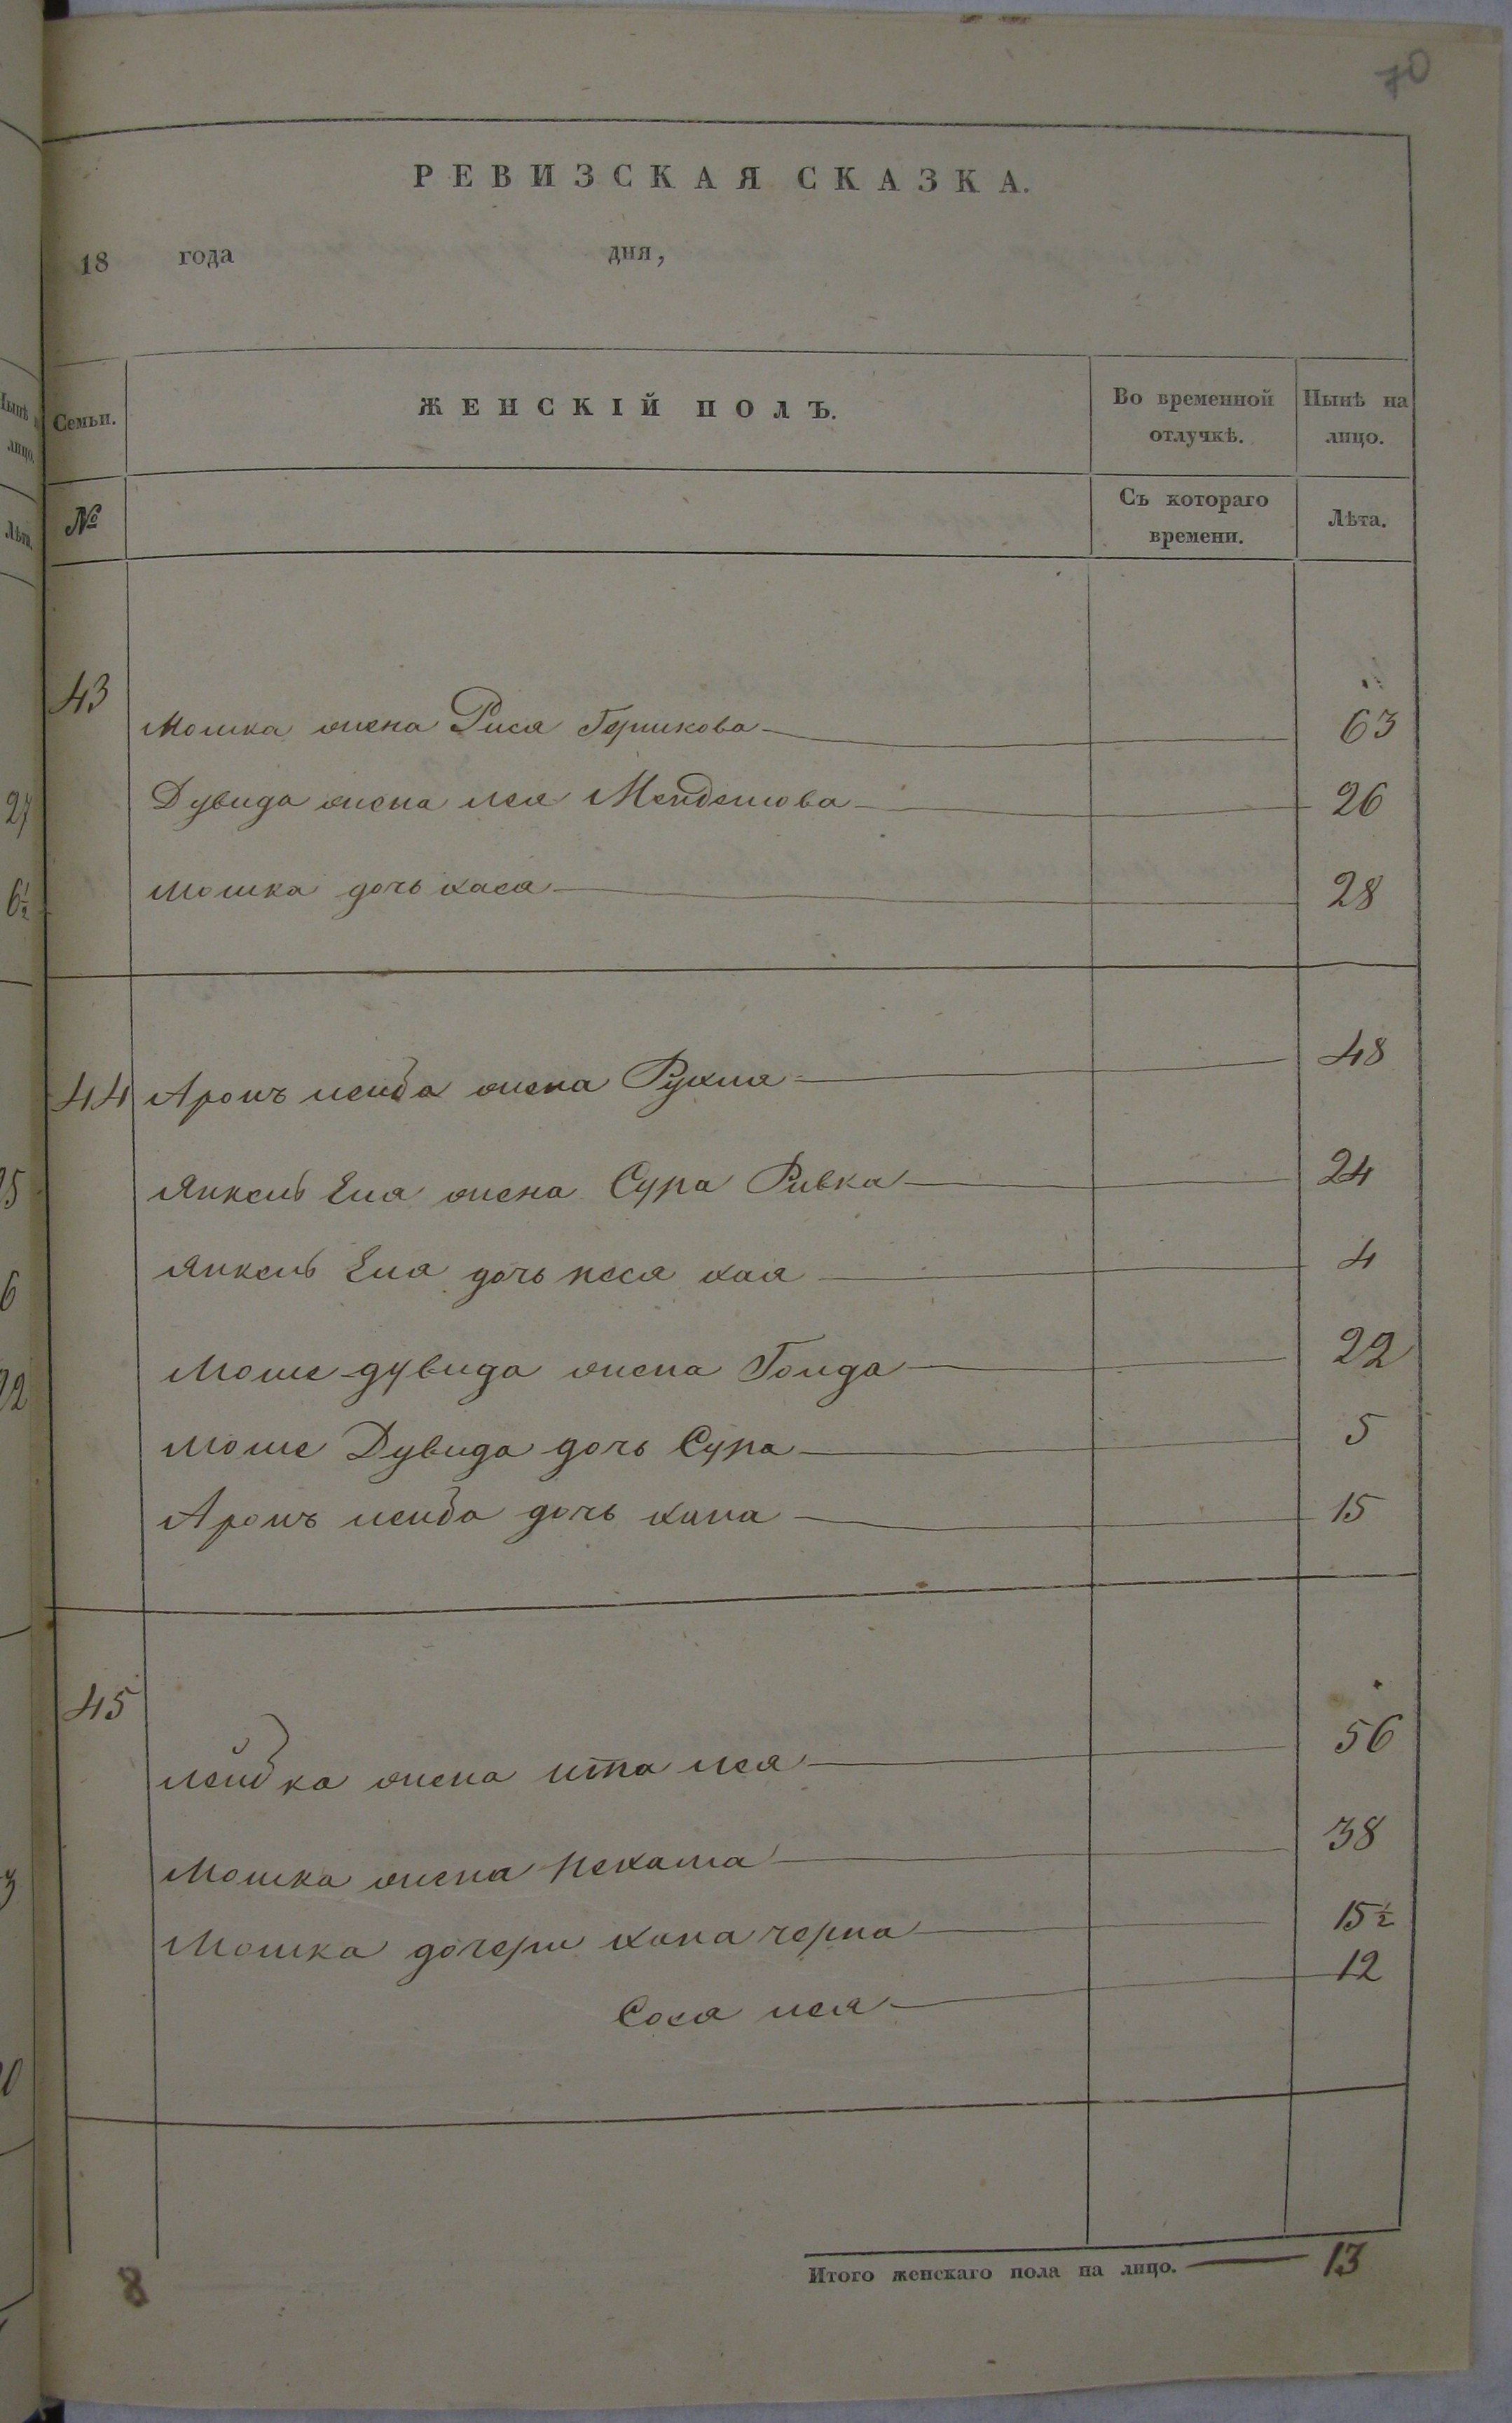 70
РЕВИЗСКАЯ СКАЗКА.
18 года дня,
Семьи. ЖЕНСКІЙ ПОЛЪ. Во временной отлучкѣ. Нынѣ на лицо.
№ Съ котораго времени. Лѣта.
43
Мошка жена Рися Гершкова 63
Дувида жена лея Менделиова 26
Мошка дочь хася 28
44 Аронъ лейба жена Рухля 48
Янкель Еля жена Сура Ривка 24
Янкель Еля дочь песя хая 4
Моше-дувида жена Голда 22
Моше Дувида дочь Сура 5
Аронъ лейба дочь хана 15
45
лейбка жена ита лея 56
Мошка жена Нехама 38
Мошка дочери хана черна 15½
Сося лея 12
Итого женскаго пола на лицо. 13
8
Нынѣ
лицо.
Лѣта.
27
6½